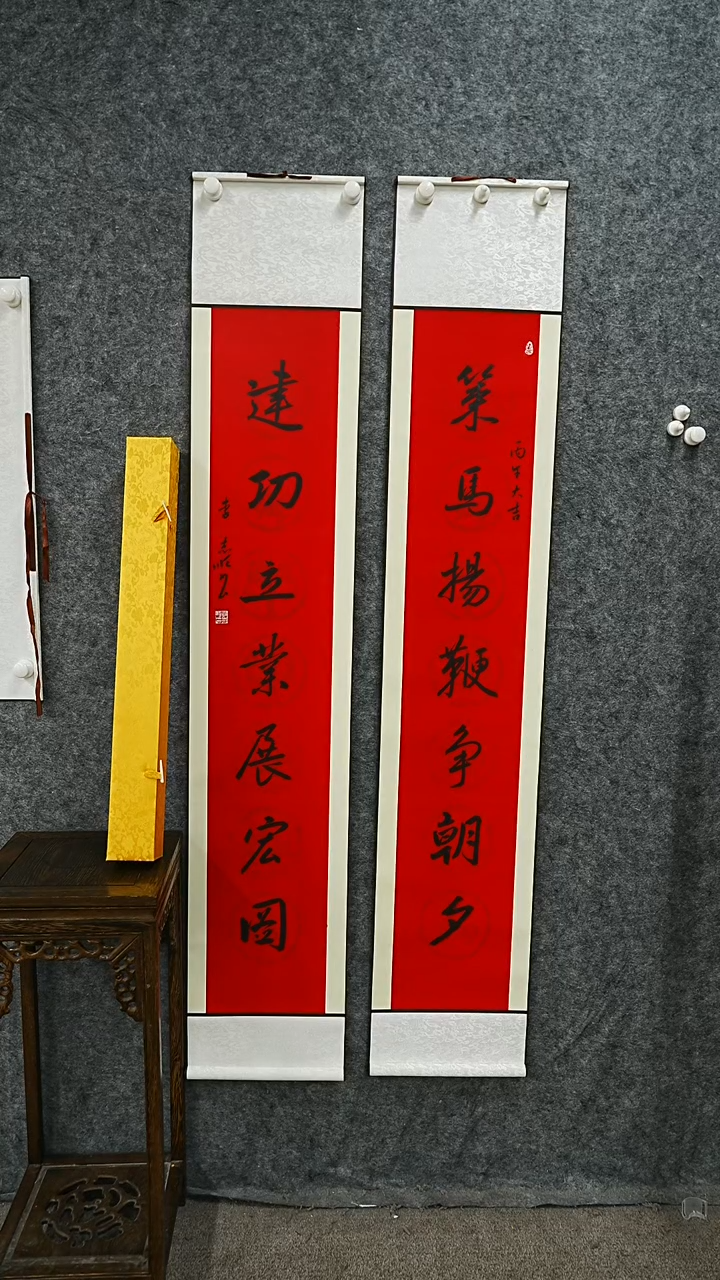 策馬揚鞭争朝夕
丙午大吉
建功立業展宏図
李志